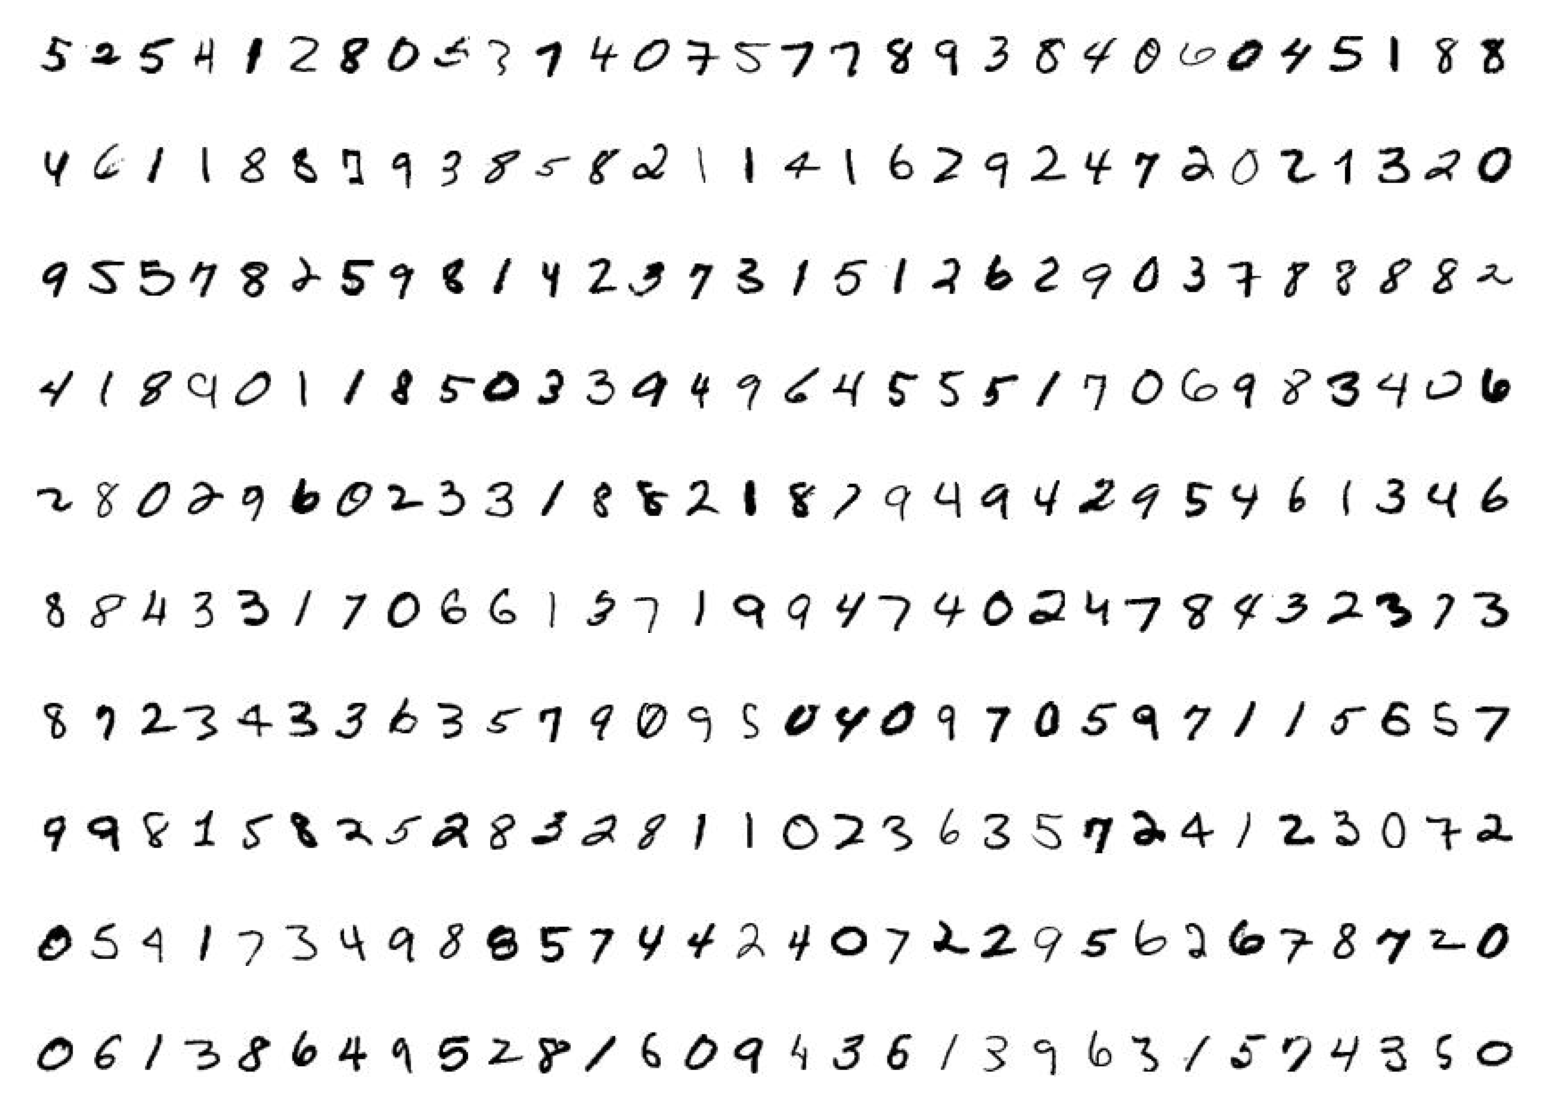 5 2 5 4 1 2 8 0 5 3 7 4 0 7 5 7 7 8 9 3 8 4 0 6 0 4 5 1 8 8
4 6 1 1 8 8 7 9 3 8 5 8 2 1 1 4 1 6 2 9 2 4 7 2 0 2 1 3 2 0
9 5 5 7 8 2 5 9 8 1 4 2 3 7 3 1 5 1 2 6 2 9 0 3 7 8 8 8 8 2
4 1 8 9 0 1 1 8 5 0 3 3 9 4 9 6 4 5 5 5 1 7 0 6 9 8 3 4 0 6
2 8 0 2 9 6 0 2 3 3 1 8 8 2 1 8 7 9 4 9 4 2 9 5 4 6 1 3 4 6
8 8 4 3 3 1 7 0 6 6 1 3 7 1 9 9 4 7 4 0 2 4 7 8 4 3 2 3 7 3
8 7 2 3 4 3 3 6 3 5 7 9 0 9 5 0 4 0 9 7 0 5 9 7 1 1 5 6 5 7
9 9 8 1 5 8 2 5 2 8 3 2 8 1 1 0 2 3 6 3 5 7 2 4 1 2 3 0 7 2
0 5 4 1 7 3 4 9 8 8 5 7 4 4 2 4 0 7 2 2 9 5 6 2 6 7 8 7 2 0
0 6 1 3 8 6 4 9 5 2 8 1 6 0 9 4 3 6 1 3 9 6 3 1 5 7 4 3 5 0